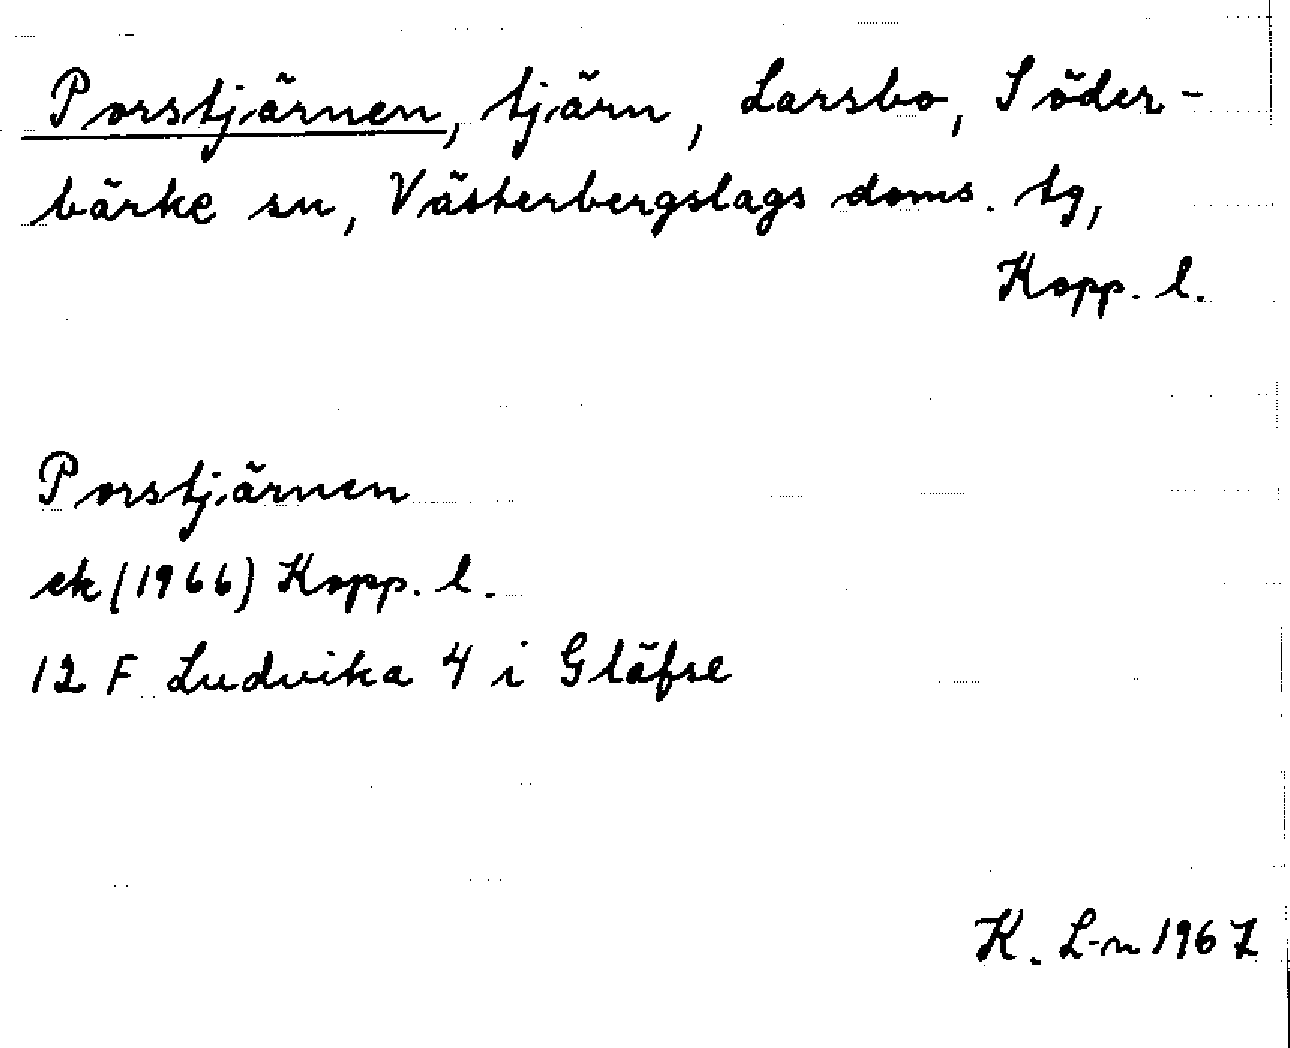 Porstjärnen, tjärn, Larsbo, Söder-
bärke sn, Västerbergslags doms. tg,
Kopp. l.
Porstjärnen
ek (1966) Kopp. l.
12 F Ludvika 4 i Gläfse
K. L-n 1967